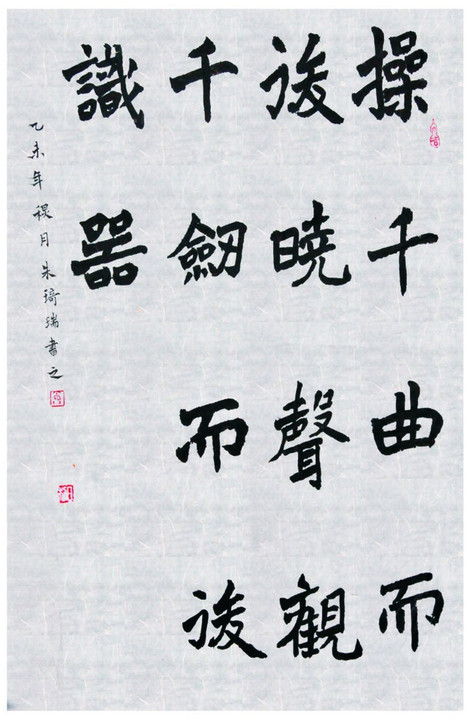 操千曲而
後曉聲觀
千劒而後
識器
乙未年禊月朱琦瑞書之